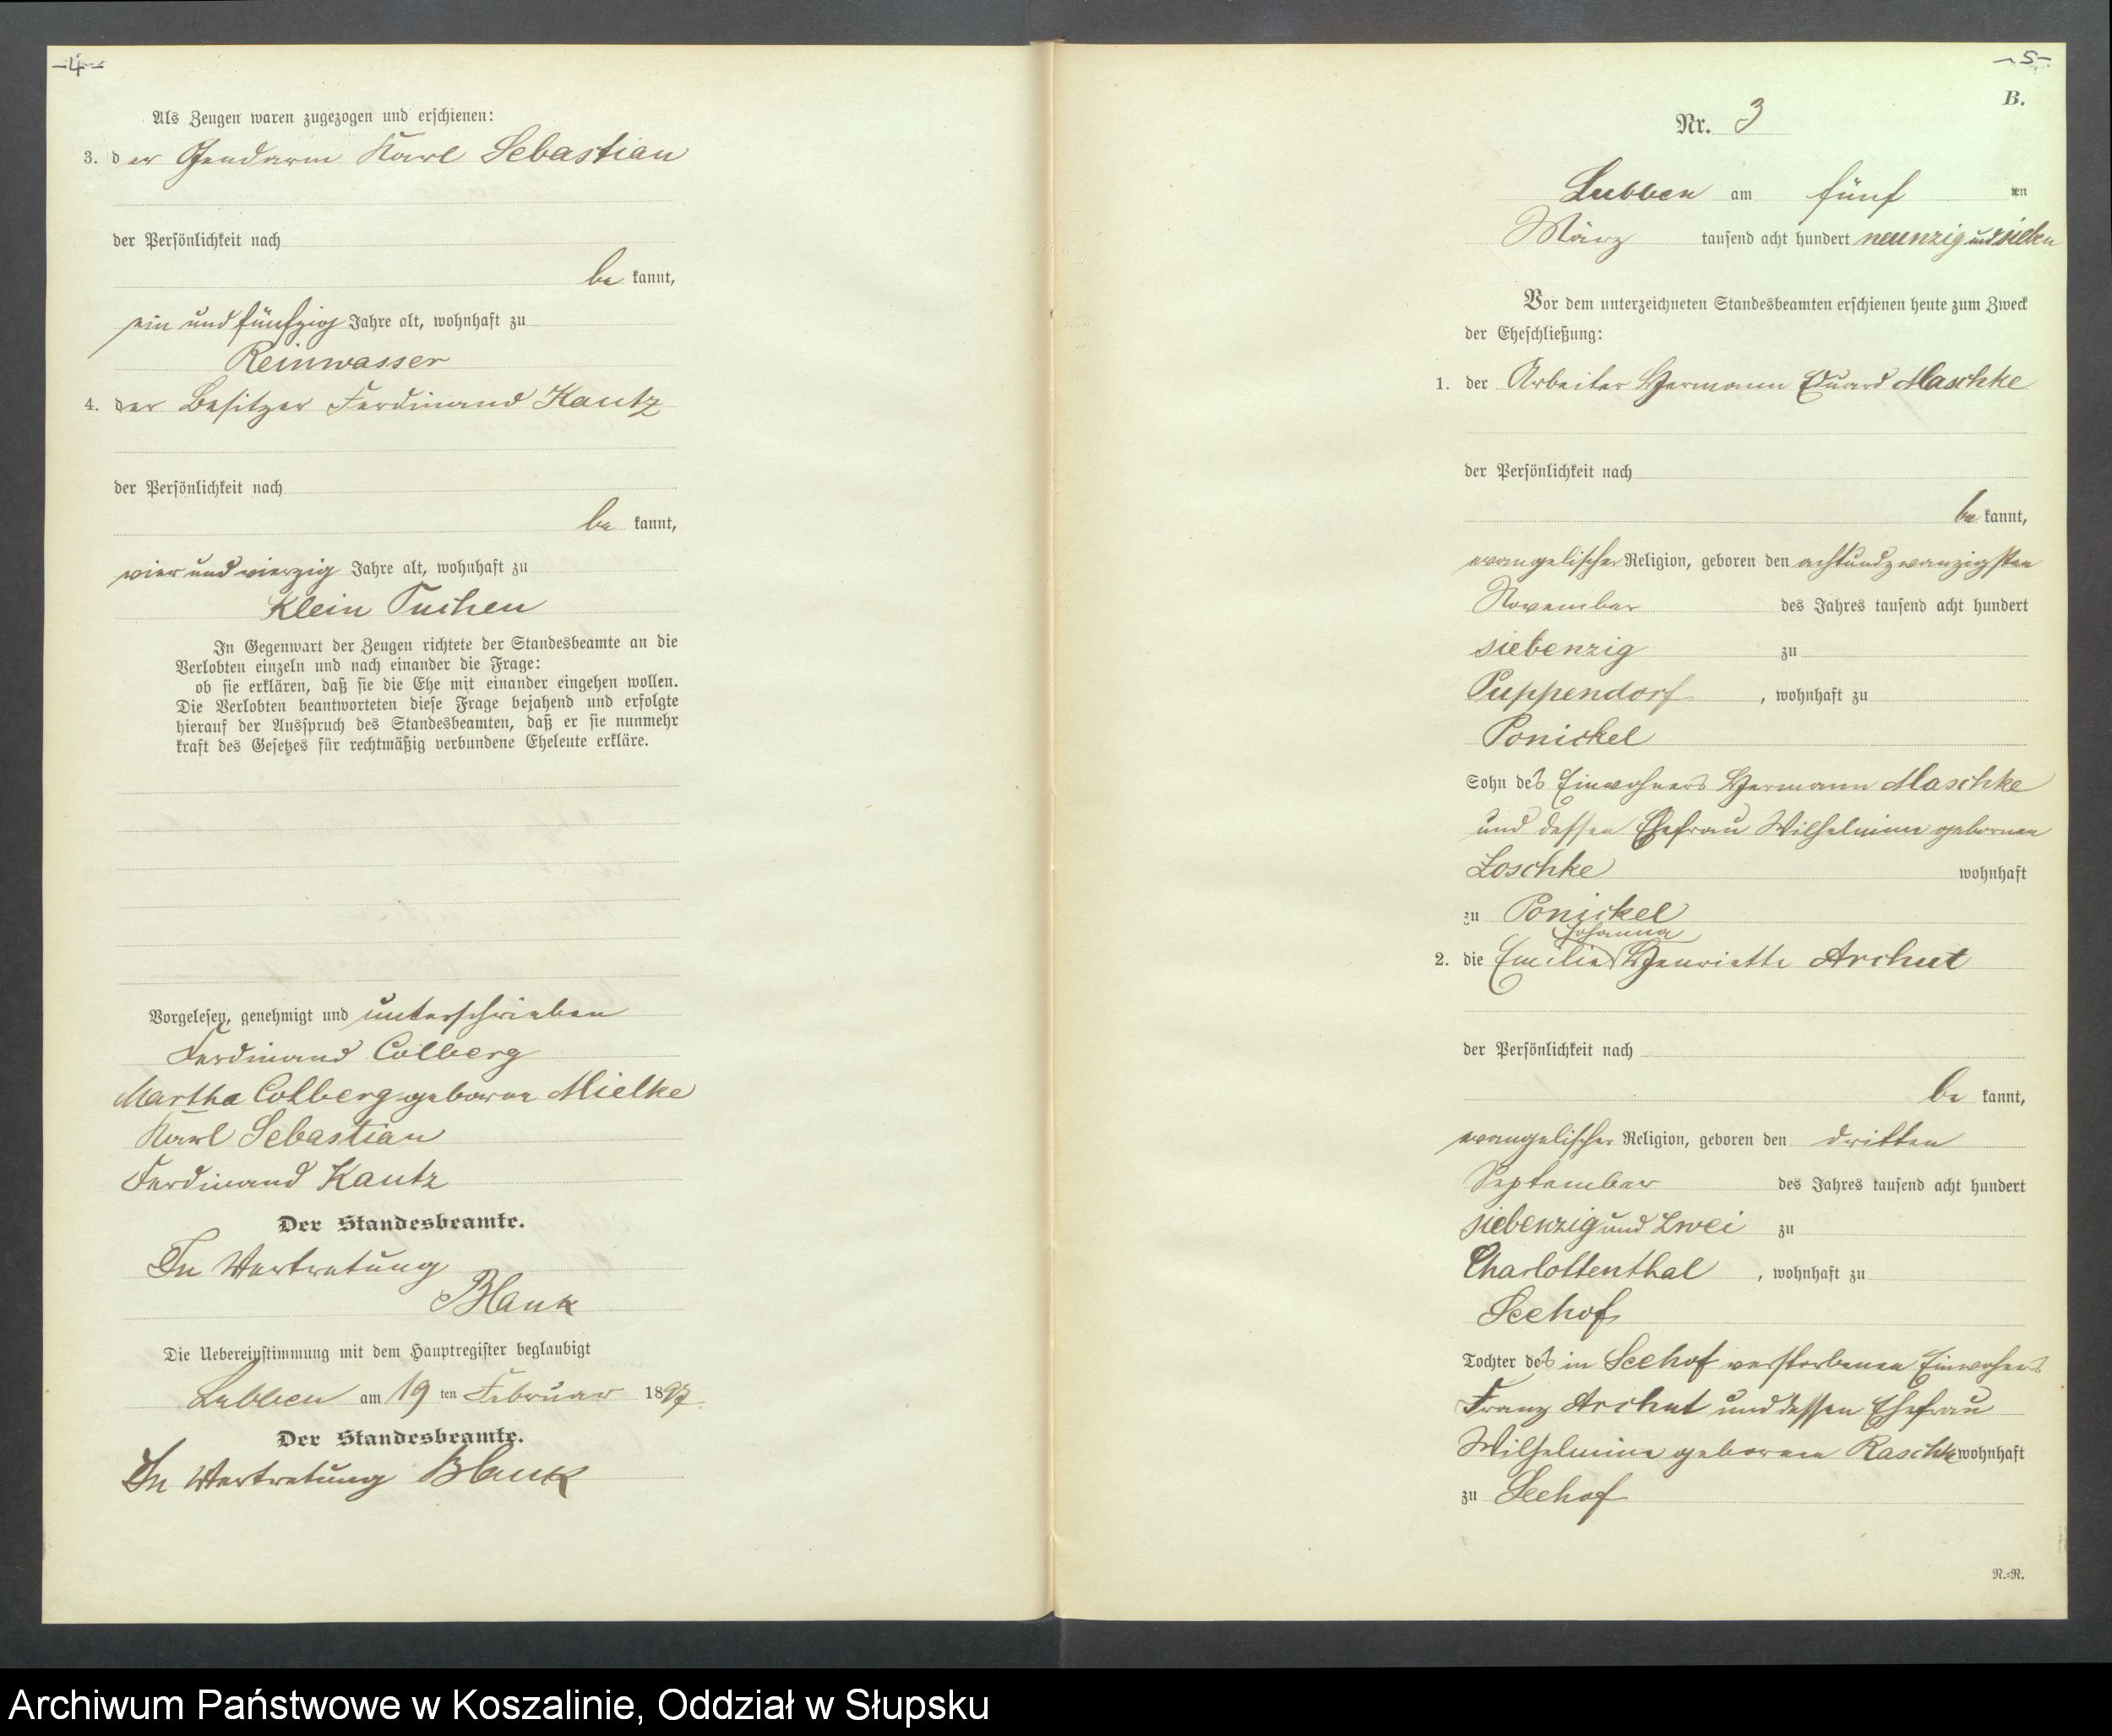 -4-
Als Zeugen waren zugezogen und erschienen:
3. der Gendarm Karl Sebastian
der Persönlichkeit nach
be kannt,
ein und fünfzig Jahre alt, wohnhaft zu
Reinwasser
4. der Besitzer Ferdinand Kautz
der Persönlichkeit nach
be kannt,
vier und vierzig Jahre alt, wohnhaft zu
Klein Tuchen
In Gegenwart der Zeugen richtete der Standesbeamte an die
Verlobten einzeln und nach einander die Frage:
ob sie erklären, daß sie die Ehe mit einander eingehen wollen.
Die Verlobten beantworteten diese Frage bejahend und erfolgte
hierauf der Ausspruch des Standesbeamten, daß er sie nunmehr
kraft des Gesetzes für rechtmäßig verbundene Eheleute erkläre.
Vorgelesen, genehmigt und unterschrieben
Ferdinand Colberg
Martha Colberg geborne Mielke
Karl Sebastian
Ferdinand Kautz
Der Standesbeamte.
In Vertretung
Blank
Die Uebereinstimmung mit dem Hauptregister beglaubigt
Lubben am 19 ten Februar 1897
Der Standesbeamte.
In Vertretung Blank
-5-
B.
Nr. 3
Lubben am fünf ten
März tausend acht hundert neunzig und sieben
Vor dem unterzeichneten Standesbeamten erschienen heute zum Zweck
der Eheschließung:
1. der Arbeiter Hermann Eduard Maschke
der Persönlichkeit nach
be kannt,
evangelischer Religion, geboren den achtundzwanzigsten
November des Jahres tausend acht hundert
siebenzig zu
Puppendorf, wohnhaft zu
Ponickel
Sohn des Einwohners Hermann Maschke
und dessen Ehefrau Wilhelmine gebornen
Loschke wohnhaft
zu Ponickel
Johanna
2. die Emilie Henriette Archut
der Persönlichkeit nach
be kannt,
evangelischer Religion, geboren den dritten
September des Jahres tausend acht hundert
siebenzig und zwei zu
Charlottenthal, wohnhaft zu
Seehof
Tochter des in Seehof verstorbenen Einwohners
Franz Archut und dessen Ehefrau
Wilhelmine geborenen Raschke wohnhaft
zu Seehof
R.=R.
Archiwum Państwowe w Koszalinie, Oddział w Słupsku